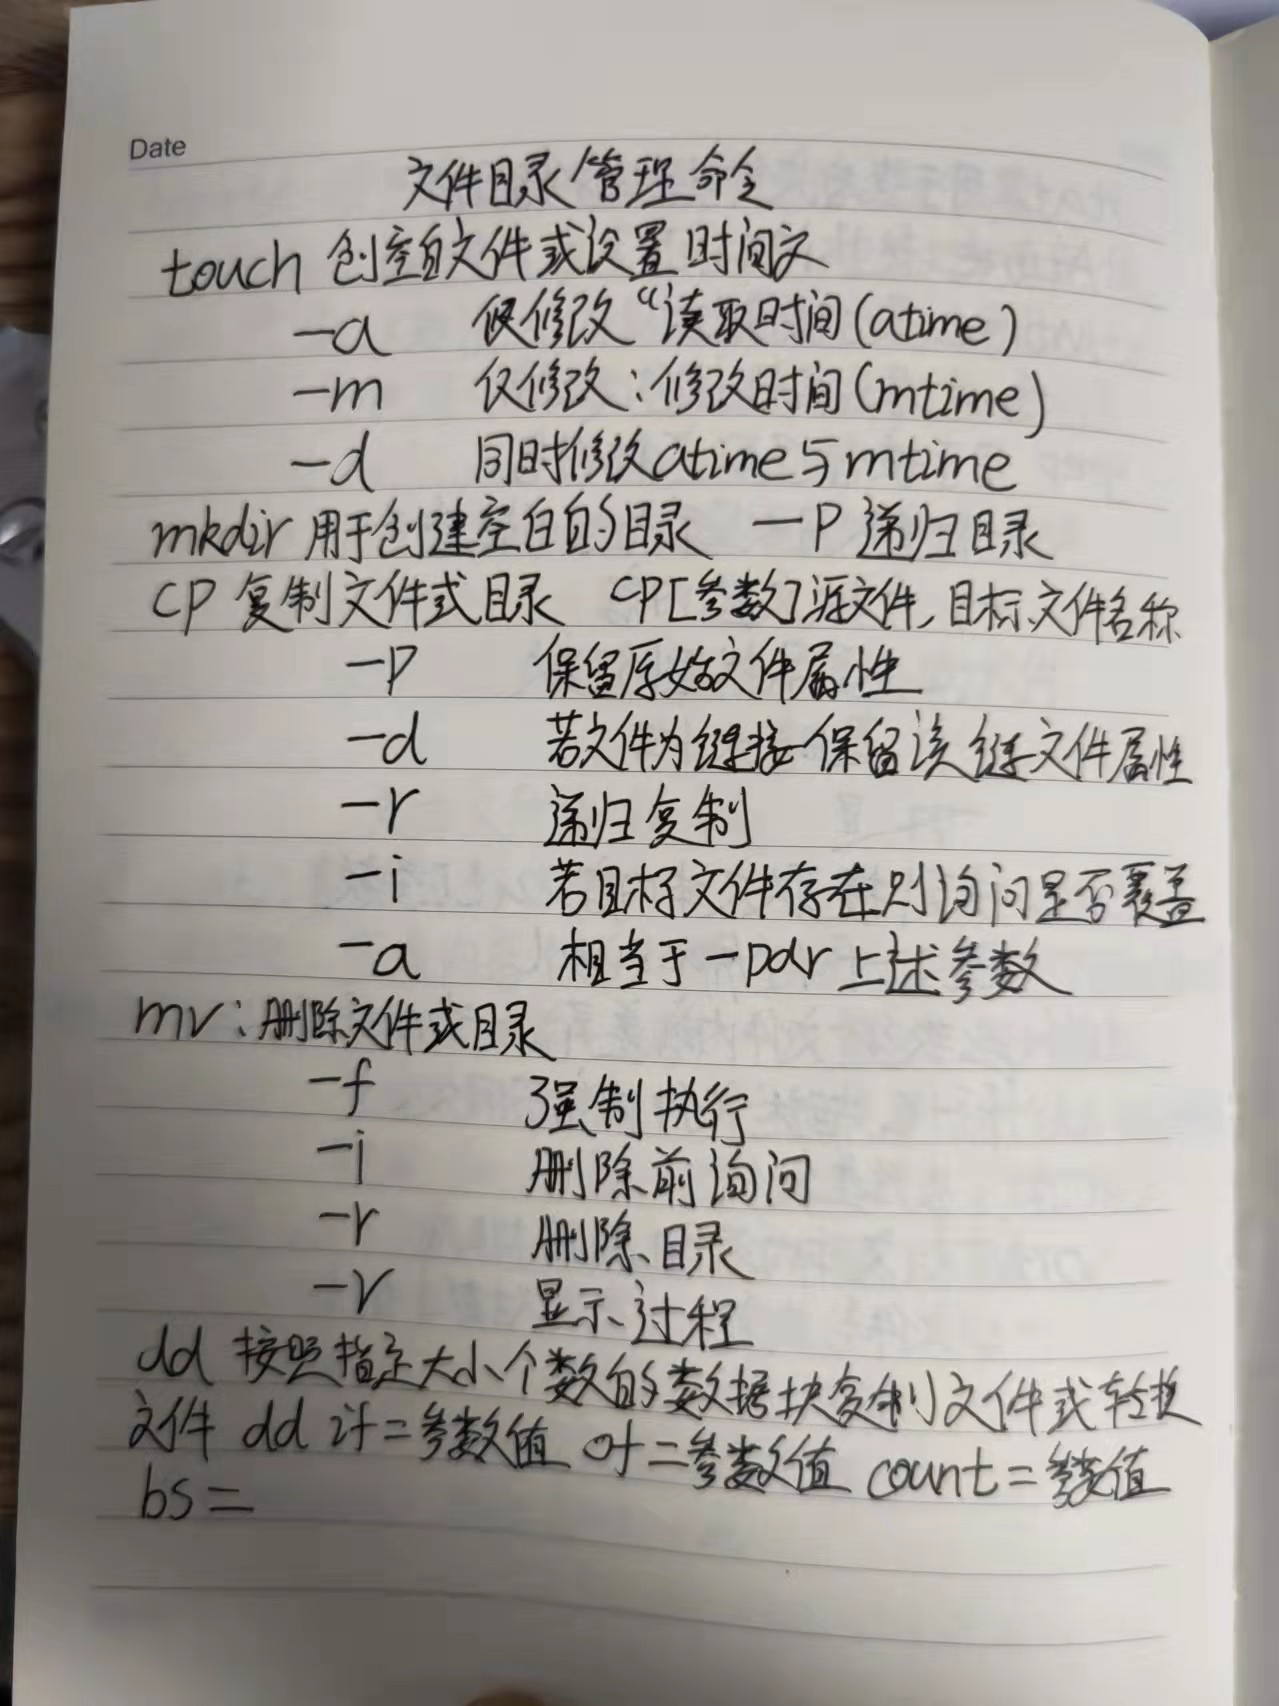 Date
文件目录管理命令
touch 创空白文件或设置时间文
-a 仅修改“读取时间(atime)
-m 仅修改:修改时间(mtime)
-d 同时修改atime与mtime
mkdir 用于创建空白的目录 -P 递归目录
CP 复制文件或目录 CP[参数]源文件,目标文件名称
-P 保留原始文件属性
-d 若文件为链接 保留该链文件属性
-r 递归复制
-i 若目标文件存在则询问是否覆盖
-a 相当于-pdr上述参数
mv:删除文件或目录
-f 强制执行
-i 删除前询问
-r 删除目录
-v 显示过程
dd 按照指定大小个数的数据块复制文件或转换
文件 dd if=参数值 of=参数值 count=参数值
bs=